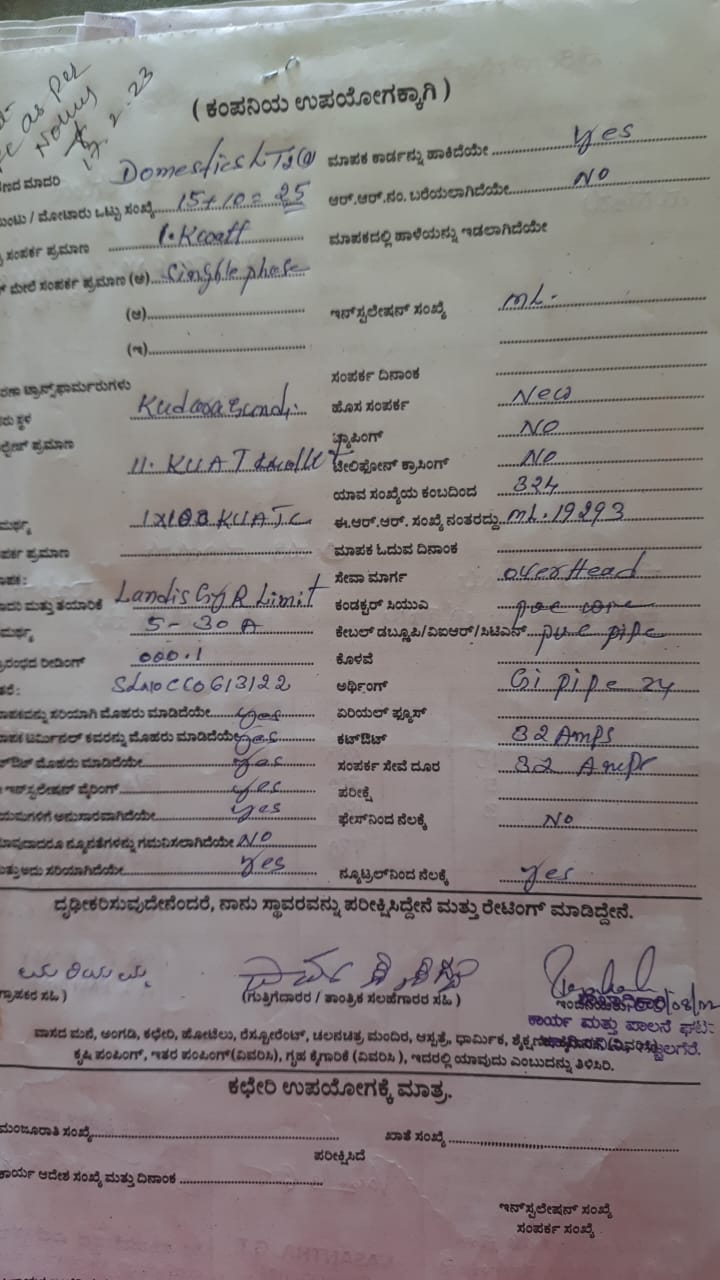 as per
17.2.23
( ಕಂಪನಿಯ ಉಪಯೋಗಕ್ಕಾಗಿ )
ಮಾದರಿ Domestics LT ಮಾಪಕ ಕಾರ್ಡನ್ನು ಹಾಕಿದೆಯೇ Yes
/ ಮೋಟಾರು ಒಟ್ಟು ಸಂಖ್ಯೆ 15+10=25 ಆರ್.ಆರ್.ನಂ. ಬರೆಯಲಾಗಿದೆಯೇ NO
ಸಂಪರ್ಕ ಪ್ರಮಾಣ 1.Kwatt ಮಾಪಕದಲ್ಲಿ ಹಾಳೆಯನ್ನು ಇಡಲಾಗಿದೆಯೇ
ಮೇಲೆ ಸಂಪರ್ಕ ಪ್ರಮಾಣ (ಅ) Singhle phase
(ಆ) ಇನ್‌ಸ್ಟಲೇಷನ್ ಸಂಖ್ಯೆ ML.
(ಇ)
ಟ್ರಾನ್ಸ್‌ಫಾರ್ಮರುಗಳು ಸಂಪರ್ಕ ದಿನಾಂಕ
ಸ್ಥಳ ಹೊಸ ಸಂಪರ್ಕ New
ಪ್ರಮಾಣ ಟ್ಯಾಪಿಂಗ್ NO
11. ಟೆಲಿಫೋನ್ ಕ್ರಾಸಿಂಗ್ NO
ಯಾವ ಸಂಖ್ಯೆಯ ಕಂಬದಿಂದ 324
1x100 KVA TC ಈ.ಆರ್.ಆರ್. ಸಂಖ್ಯೆ ನಂತರದ್ದು ML.19293
ಪ್ರಮಾಣ ಮಾಪಕ ಓದುವ ದಿನಾಂಕ
ಸೇವಾ ಮಾರ್ಗ overHead
ಮತ್ತು ತಯಾರಿಕೆ Landis Gy R Limit ಕಂಡಕ್ಟರ್ ಸಿಯುಎ
5-30A ಕೇಬಲ್ ಡಬ್ಲೂಪಿ/ವಿಐಆರ್/ಸಿಟಿಎಸ್ pvc pipe
ರೀಡಿಂಗ್ 000.1 ಕೊಳವೆ
ಅರ್ಥಿಂಗ್ Gi pipe 24
ಸರಿಯಾಗಿ ಮೊಹರು ಮಾಡಿದೆಯೇ Yes ಏರಿಯಲ್ ಫ್ಯೂಸ್
ಟರ್ಮಿನಲ್ ಕವರನ್ನು ಮೊಹರು ಮಾಡಿದೆಯೇ Yes ಕಟ್‌ಔಟ್ 32 Amps
ಮೊಹರು ಮಾಡಿದೆಯೇ Yes ಸಂಪರ್ಕ ಸೇವೆ ದೂರ 32
ಇನ್‌ಸ್ಟಲೇಷನ್ ವೈರಿಂಗ್ Yes ಪರೀಕ್ಷೆ
ಅನುಸಾರವಾಗಿದೆಯೇ Yes ಫೇಸ್‌ನಿಂದ ನೆಲಕ್ಕೆ No
ನ್ಯೂನತೆಗಳನ್ನು ಗಮನಿಸಲಾಗಿದೆಯೇ NO
ಅದು ಸರಿಯಾಗಿದೆಯೇ Yes ನ್ಯೂಟ್ರಲ್‌ನಿಂದ ನೆಲಕ್ಕೆ Yes
ದೃಢೀಕರಿಸುವುದೇನೆಂದರೆ, ನಾನು ಸ್ಥಾವರವನ್ನು ಪರೀಕ್ಷಿಸಿದ್ದೇನೆ ಮತ್ತು ರೇಟಿಂಗ್ ಮಾಡಿದ್ದೇನೆ.
ಗ್ರಾಹಕರ ಸಹಿ ) (ಗುತ್ತಿಗೆದಾರರ / ತಾಂತ್ರಿಕ ಸಲಹೆಗಾರರ ಸಹಿ )
ಕಾರ್ಯ ಮತ್ತು ಪಾಲನೆ ಘಟ
ವಾಸದ ಮನೆ, ಅಂಗಡಿ, ಕಛೇರಿ, ಹೋಟೆಲು, ರೆಸ್ಟೋರೆಂಟ್, ಚಲನಚಿತ್ರ ಮಂದಿರ, ಆಸ್ಪತ್ರೆ, ಧಾರ್ಮಿಕ,
ಕೃಷಿ ಪಂಪಿಂಗ್, ಇತರ ಪಂಪಿಂಗ್(ವಿವರಿಸಿ), ಗೃಹ ಕೈಗಾರಿಕೆ (ವಿವರಿಸಿ ), ಇದರಲ್ಲಿ ಯಾವುದು ಎಂಬುದನ್ನು ತಿಳಿಸಿರಿ.
ಕಛೇರಿ ಉಪಯೋಗಕ್ಕೆ ಮಾತ್ರ.
ಮಂಜೂರಾತಿ ಸಂಖ್ಯೆ ಖಾತೆ ಸಂಖ್ಯೆ
ಪರೀಕ್ಷಿಸಿದೆ
ಕಾರ್ಯ ಆದೇಶ ಸಂಖ್ಯೆ ಮತ್ತು ದಿನಾಂಕ
ಇನ್‌ಸ್ಟಲೇಷನ್ ಸಂಖ್ಯೆ
ಸಂಪರ್ಕ ಸಂಖ್ಯೆ